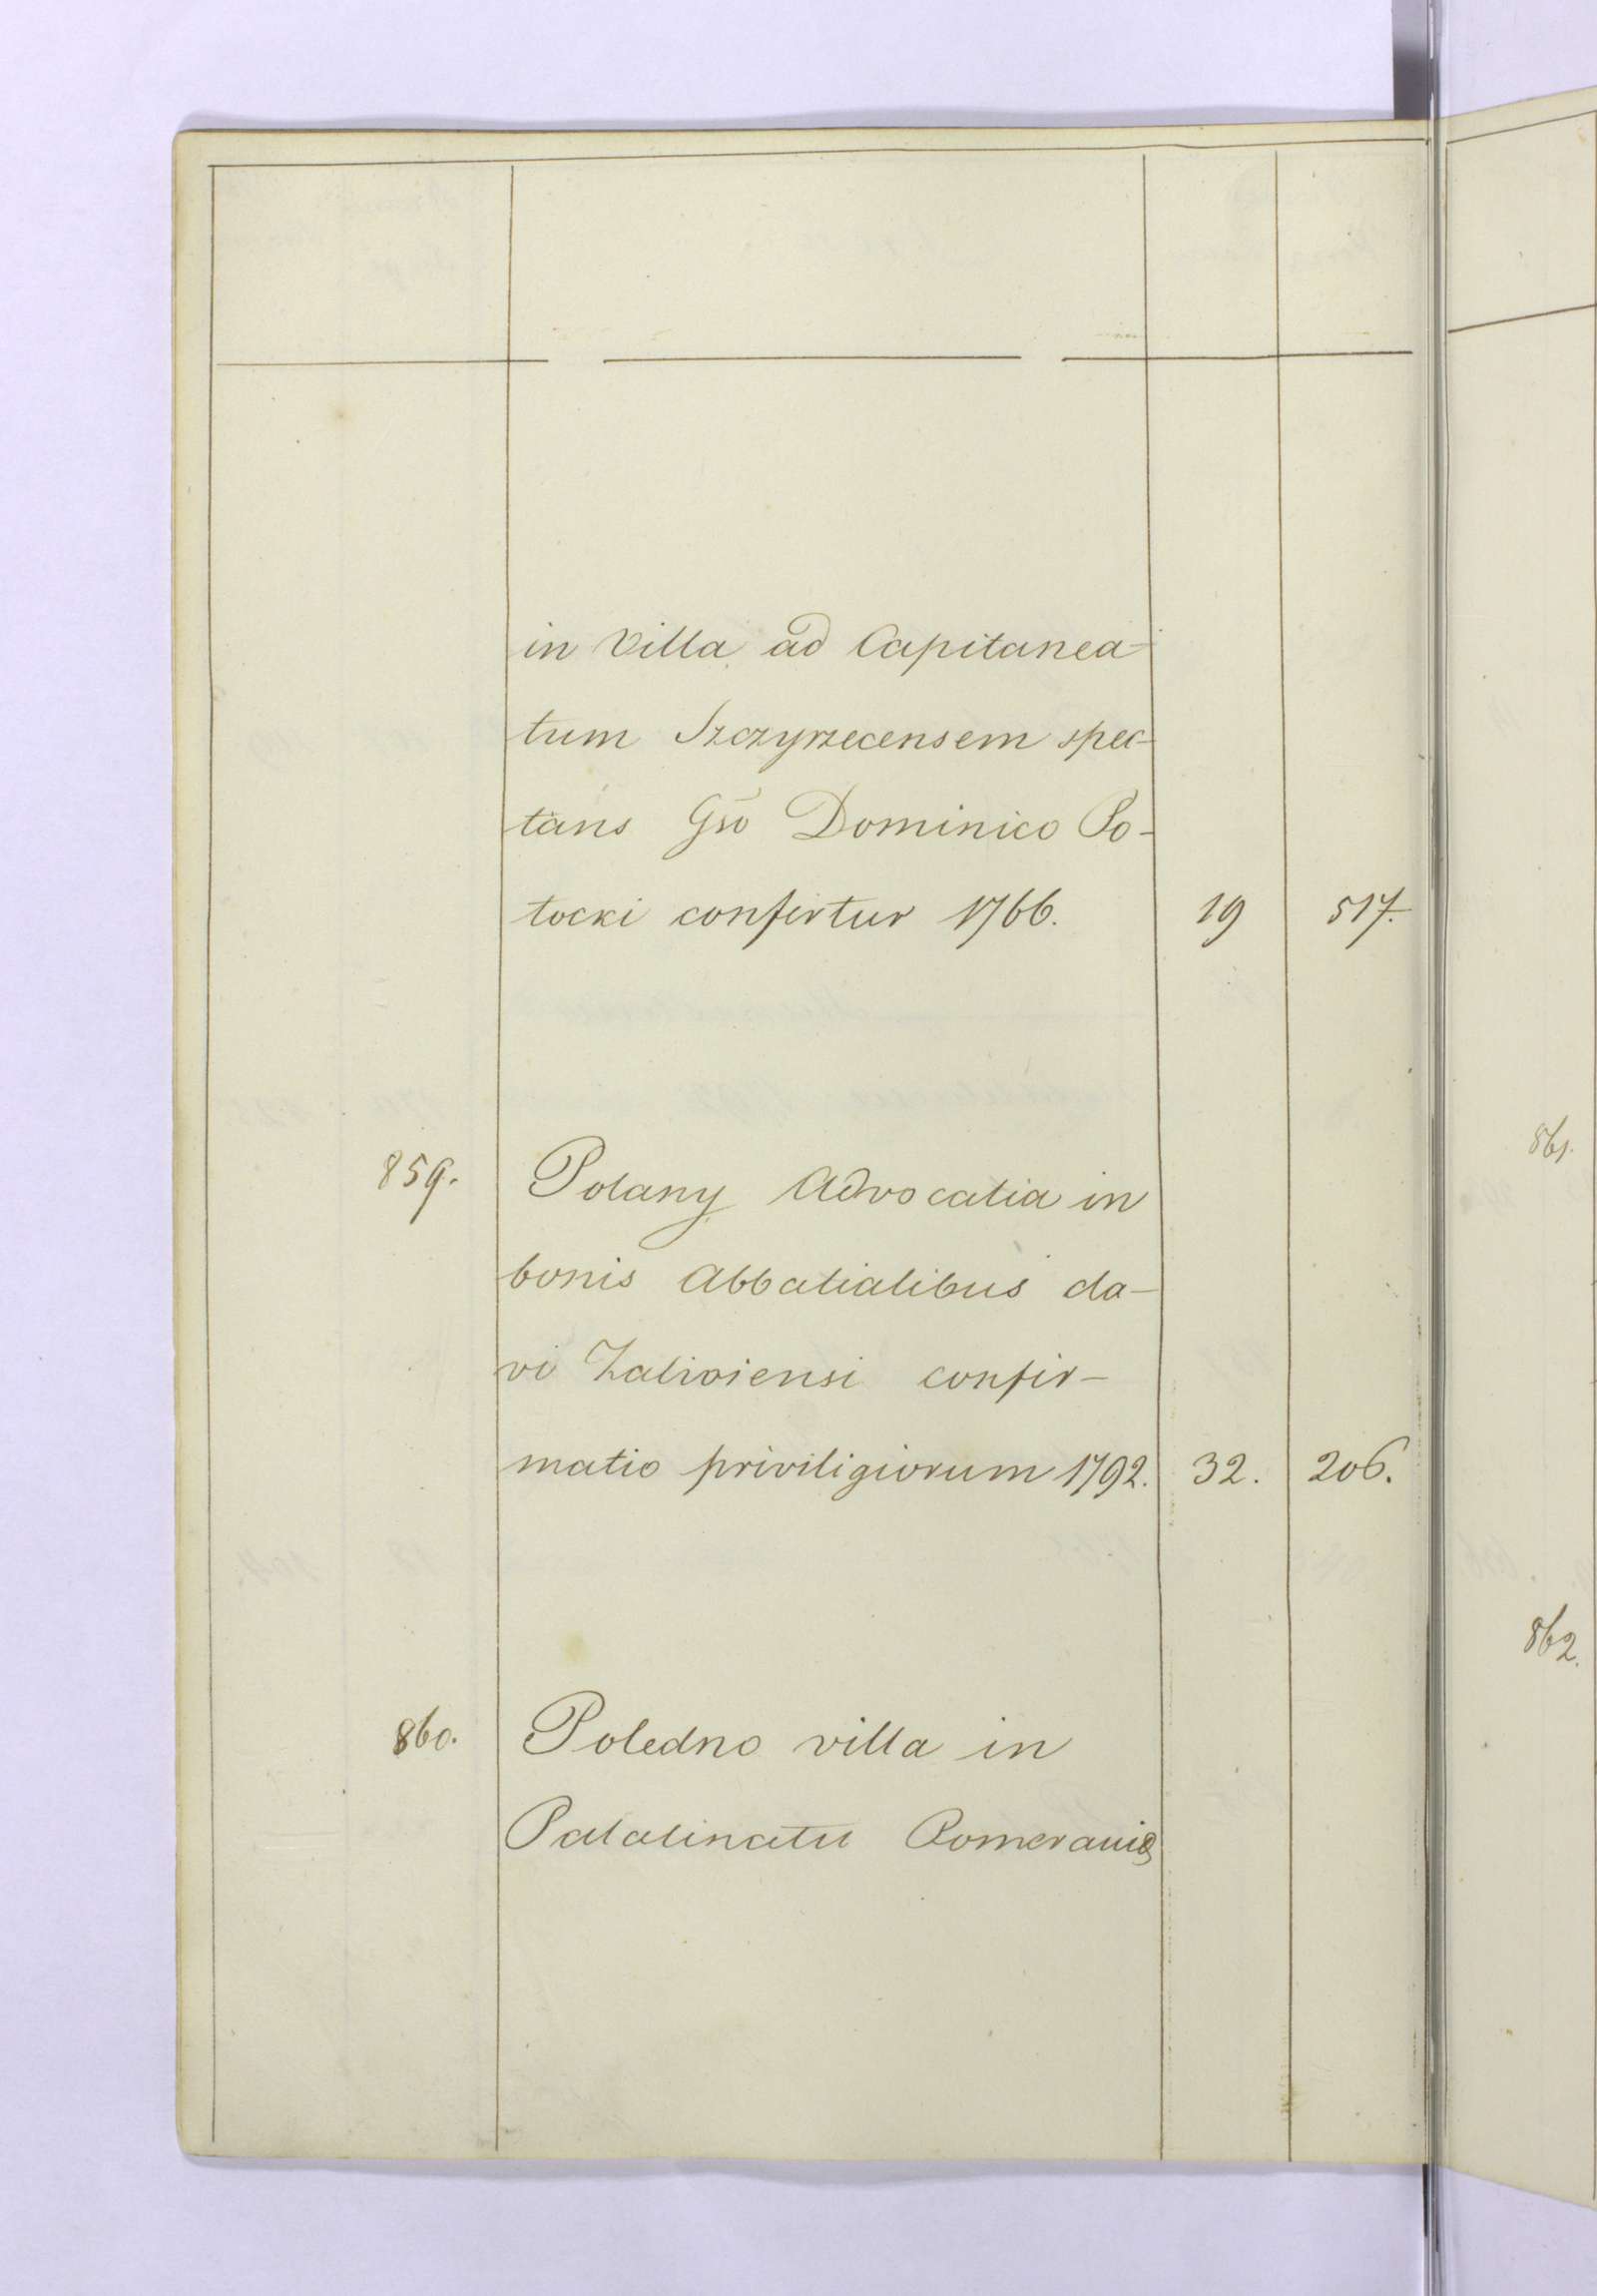 in Villa ad Capitanea-
tum Szczyrzecensem spec-
tans Gso Dominico Po-
tocki confirtur 1766. 19 517.
859. Polany Advocatia in
bonis Abbatialibus cla-
vi Zaliviensi confir-
matio priviligiorum 1792. 32. 206.
860. Poledno villa in
Palatinatu Pomeraniæ
861.
862.